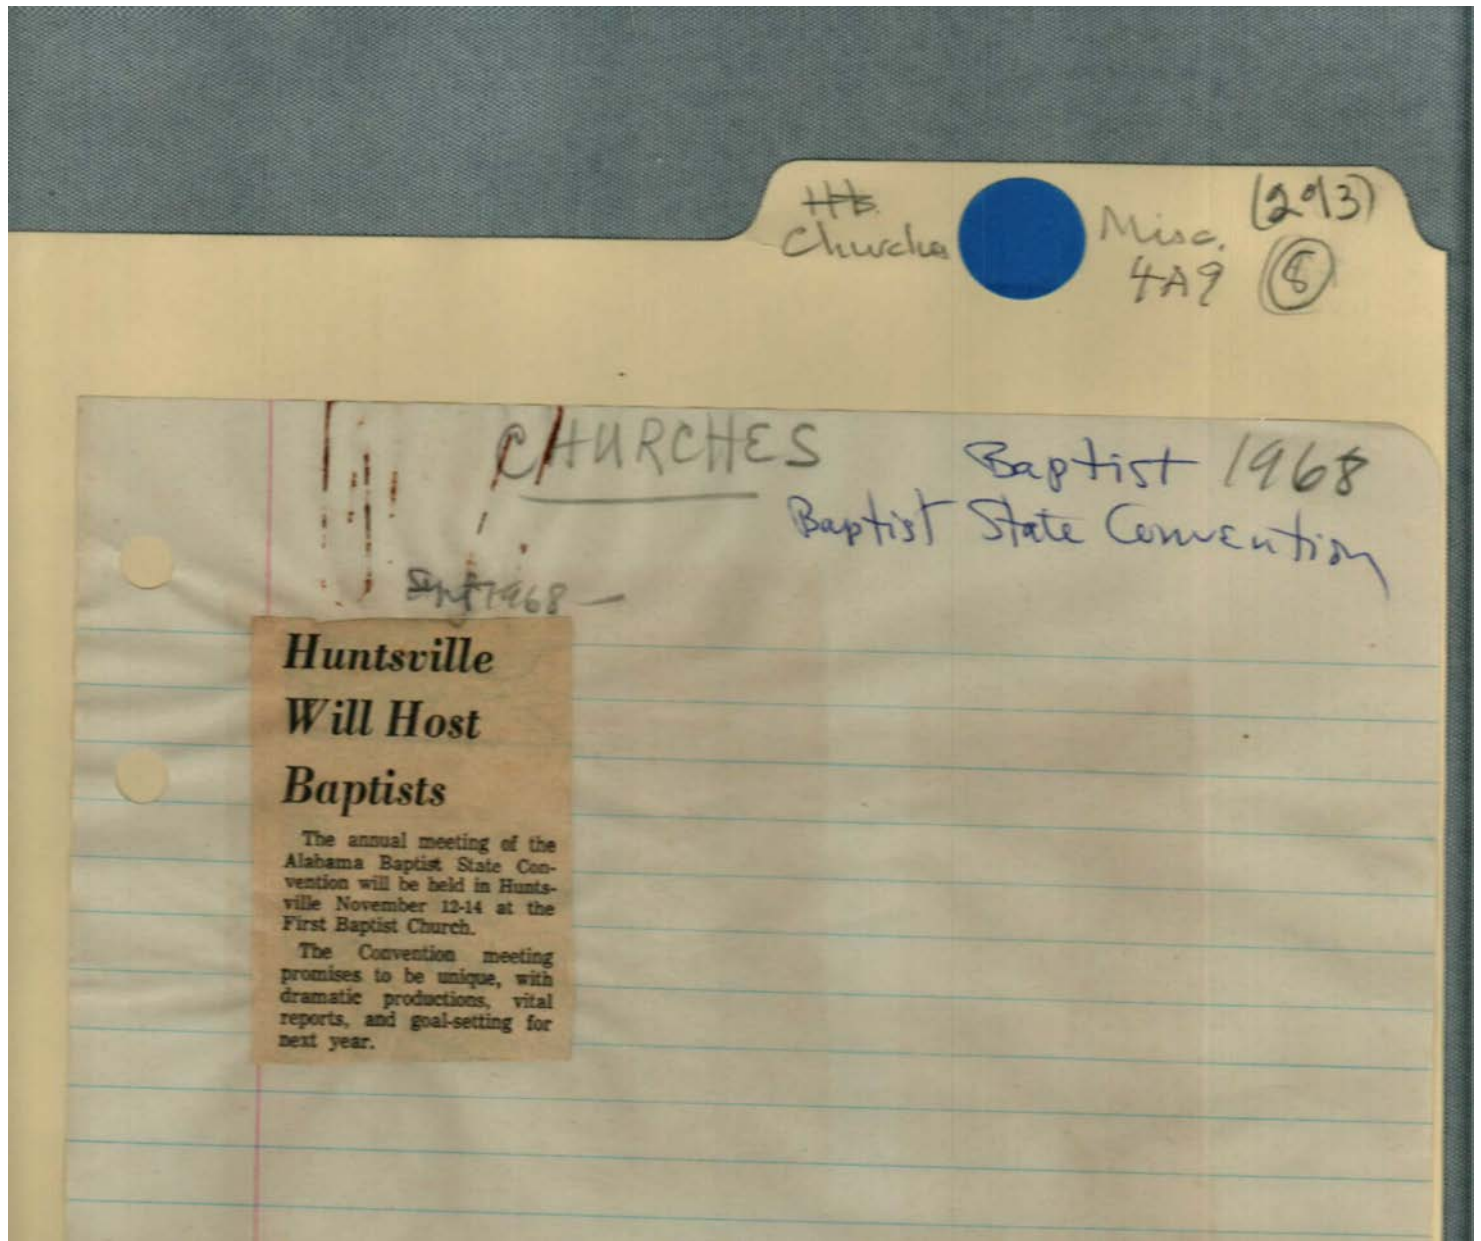 Churches
Misc.
4A9
(2913)
8
CHURCHES
Baptist 1968
Baptist State Convention
Sept 1968 —
Huntsville
Will Host
Baptists
The annual meeting of the
Alabama Baptist State Con-
vention will be held in Hunts-
ville November 12-14 at the
First Baptist Church.
The Convention meeting
promises to be unique, with
dramatic productions, vital
reports, and goal-setting for
next year.